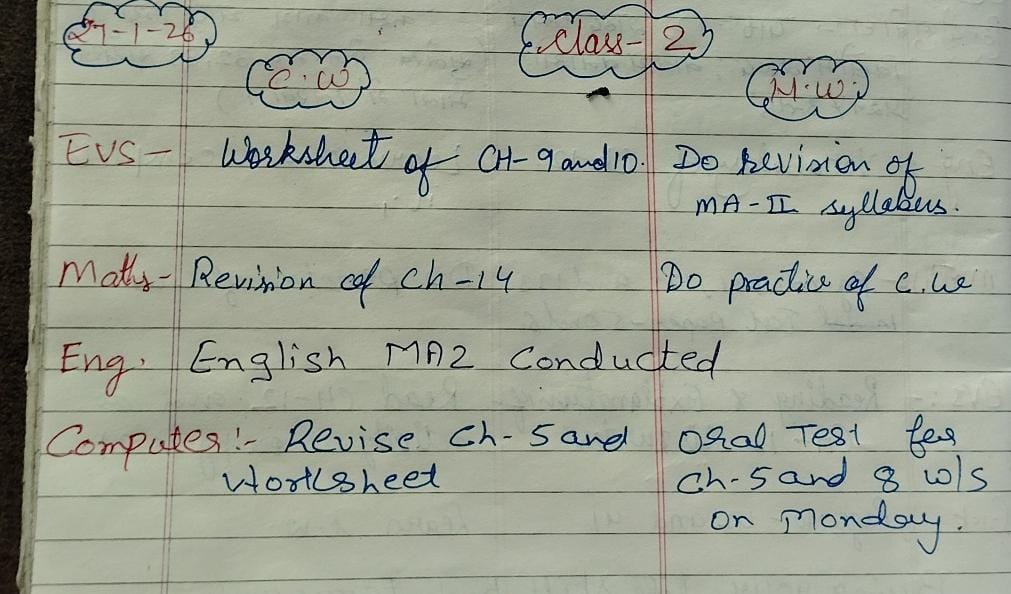 27-1-26 Class-2
C.W H.W.
EVS- Worksheet of CH-9 and 10. Do Revision of
MA-II syllabus.
Maths- Revision of Ch-14 Do practice of C.W
Eng. English MA2 Conducted
Computer:- Revise Ch-5 and Oral Test for
Worksheet Ch-5 and 8 w/s
on Monday.